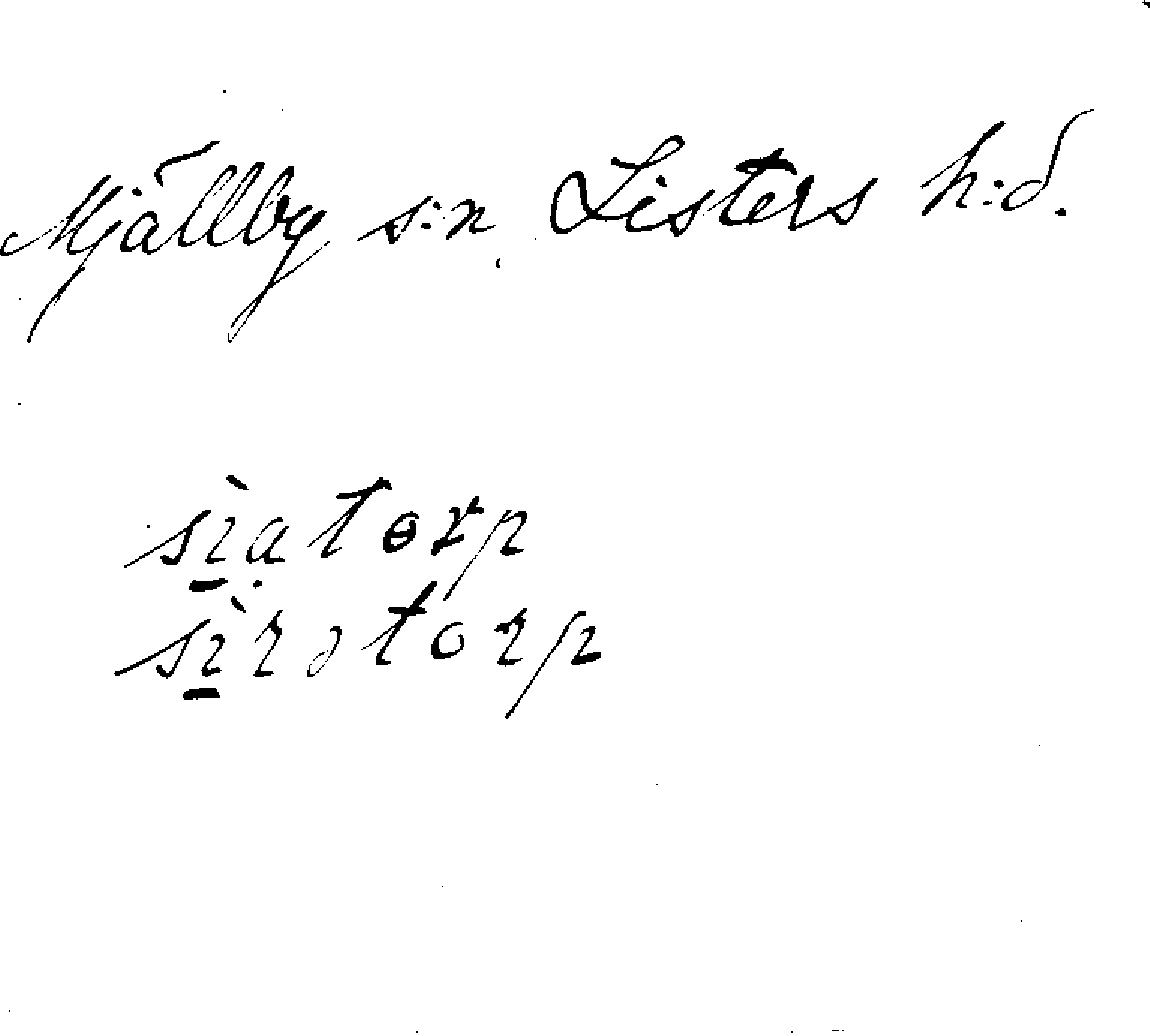 Mjällby s:n, Listers h:d.
sı̲̀ạtorp
sı̲̀rətorp